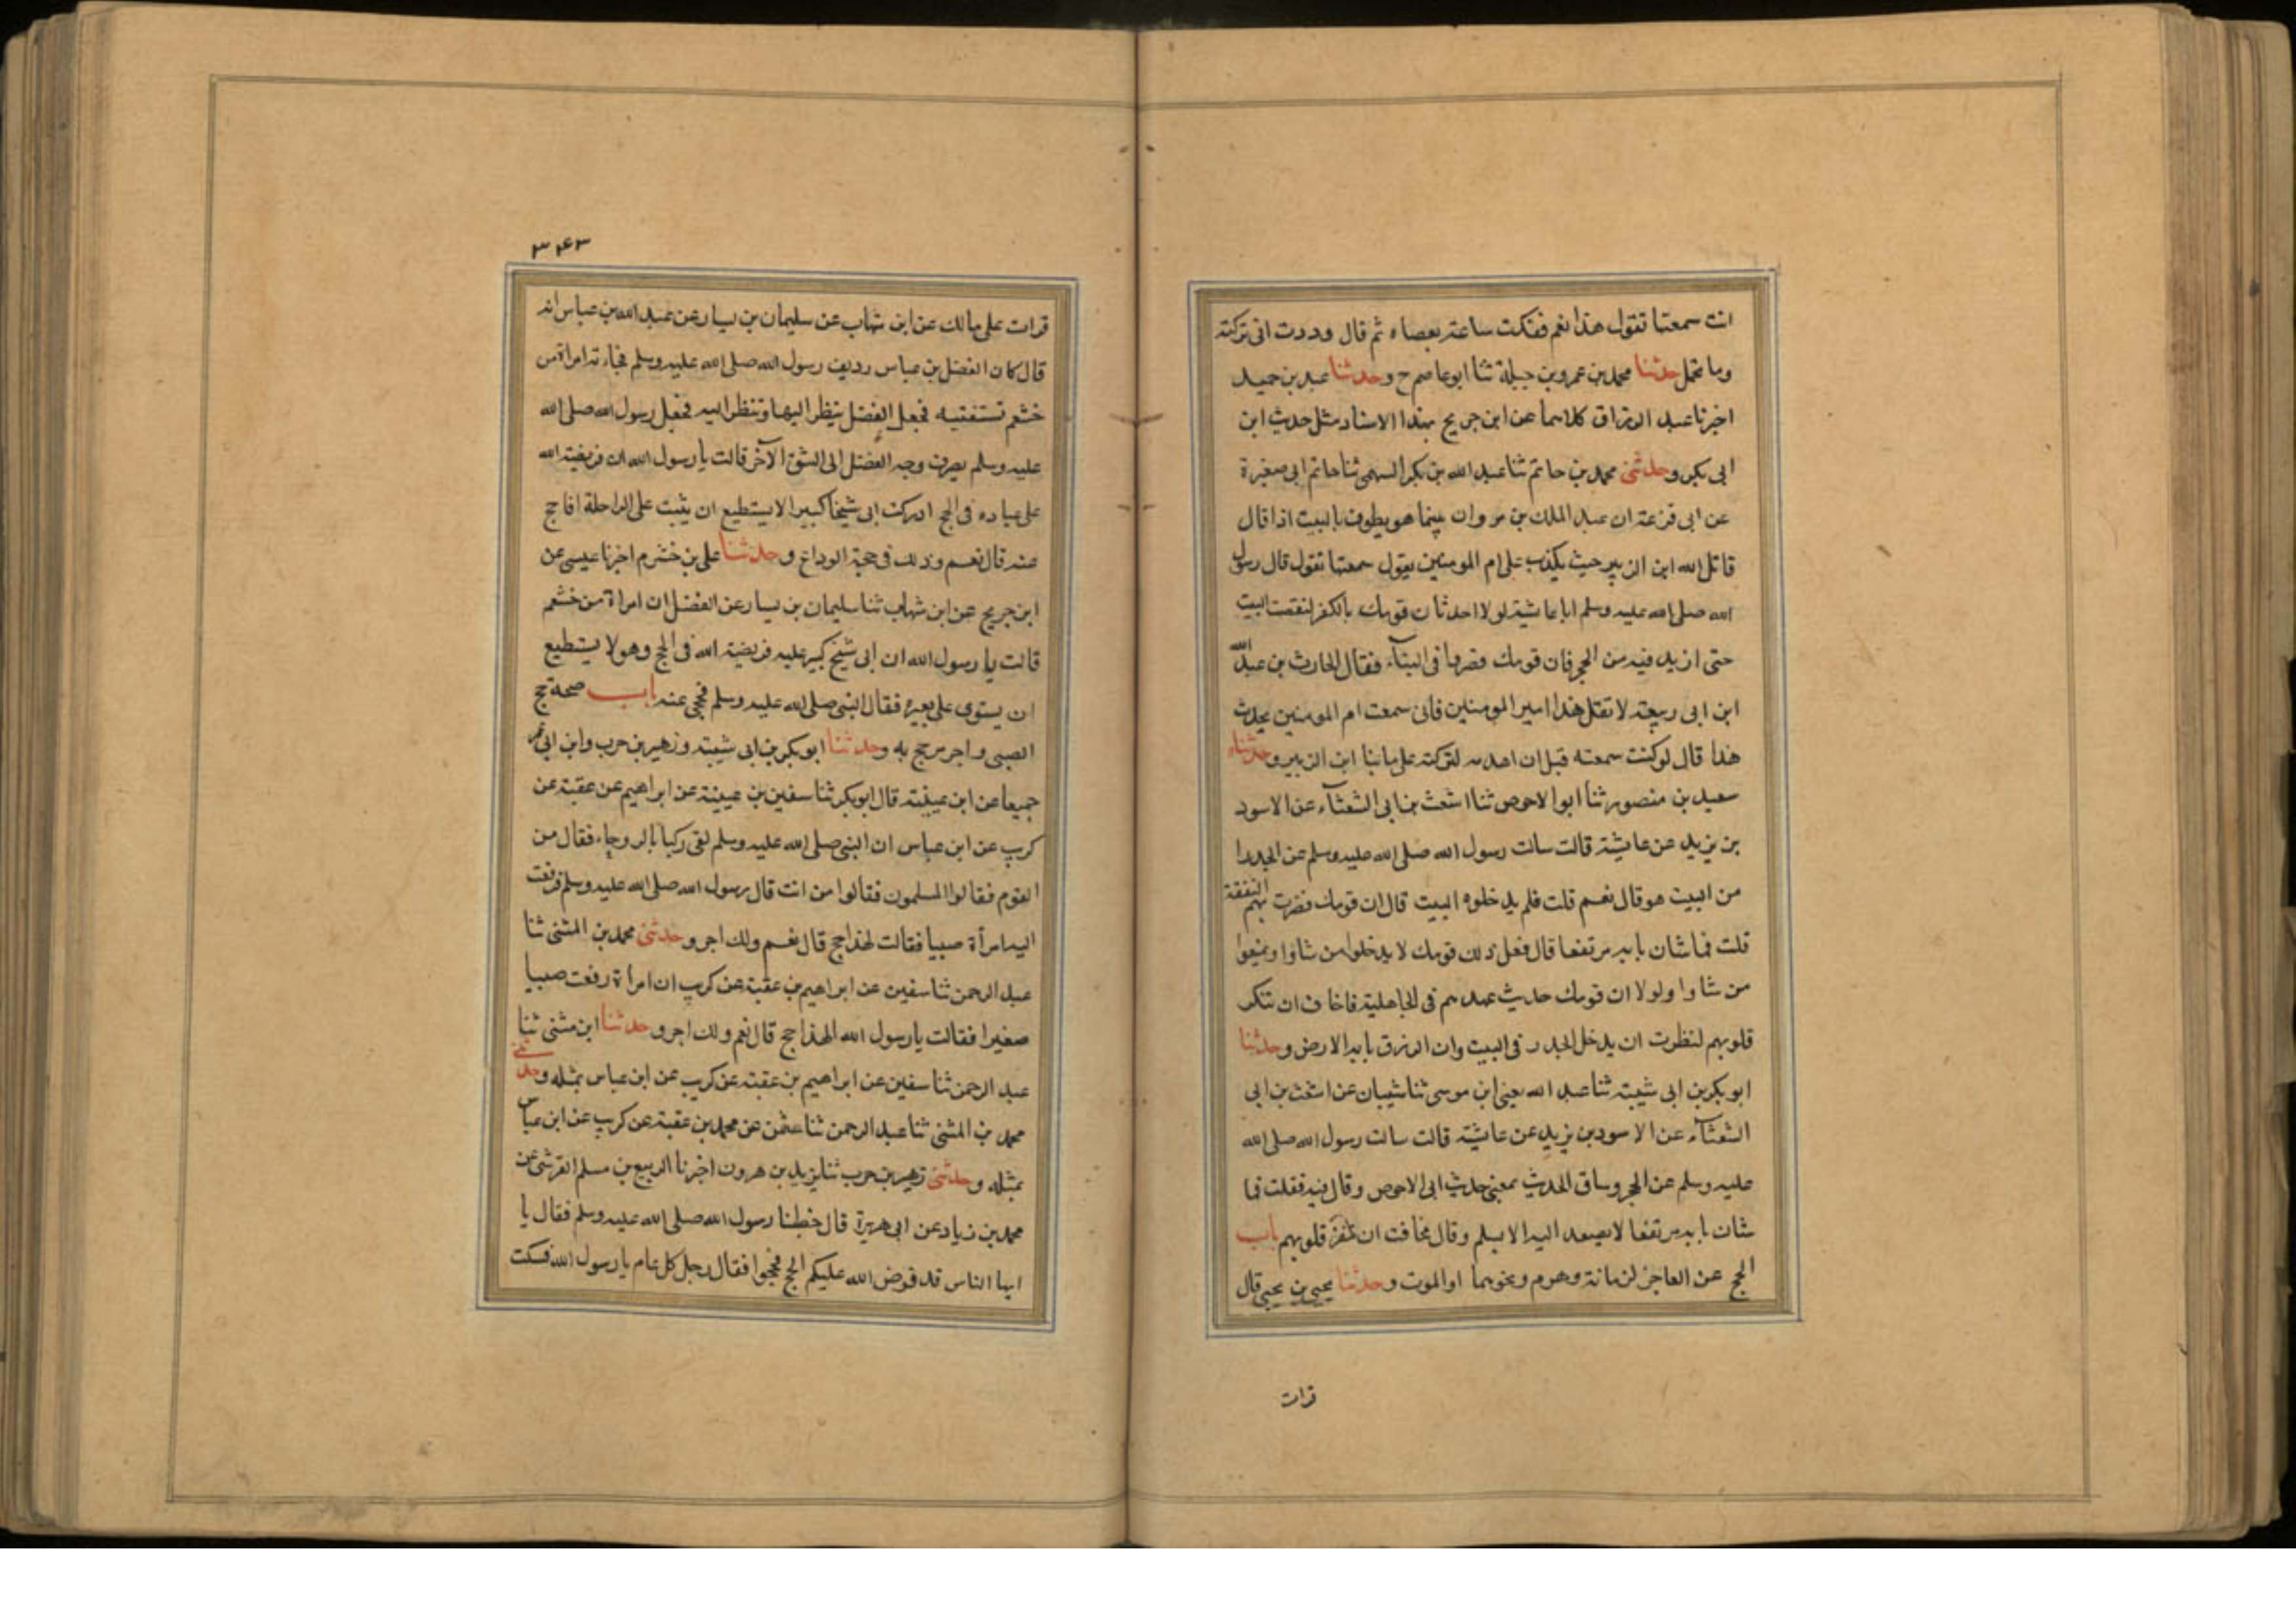 انت سمعتها تقول هذا نعم فنكت ساعة بعصاه ثم قال وددت انى تركته
وما تحمل حدثنا محمد بن عمرو بن جبلة ثنا ابو عاصم ح وحدثنا عبد بن حميد
اخبرنا عبد الرزاق كلاهما عن ابن جريج بهذا الاسناد مثل حديث ابن
ابى بكر وحدثنى محمد بن حاتم ثنا عبد الله بن بكر السهمى ثنا حاتم ابى صغيرة
عن ابى قزعة ان عبد الملك بن مروان بينما هو يطوف بالبيت اذا قال
قاتل الله ابن الزبير حيث يكذب على ام المومنين يقول سمعتها تقول قال رسول
الله صلى الله عليه وسلم ايا عايشة لولا احدثان قومك بالكفر لنقضت البيت
حتى ازيد فيه من الحجر فان قومك قصروا فى البنآء فقال الحارث بن عبد الله
ابن ابى ربيعة لا تقل هذا امير المومنين فانى سمعت ام المومنين تحدث
هذا قال لو كنت سمعته قبل ان اهدمه لتركته على ما بنا ابن الزبير وحدثناه
سعيد بن منصور ثنا ابو الاحوص ثنا اشعث بن ابى الشعثآء عن الاسود
بن يزيد عن عايشة قالت سالت رسول الله صلى الله عليه وسلم عن الجدر ا
من البيت هو قال نعم قلت فلم يدخلوه البيت قال ان قومك قصرت بهم النفقة
قلت فما شان بابه مرتفعا قال فعل ذلك قومك لا يدخلوا من شاؤا ويمنعوا
من شاوا ولولا ان قومك حديث عهدهم فى الجاهلية فاخاف ان تنكر
قلوبهم لنظرت ان يدخل الجدر فى البيت وان الزق بابه الارض وحدثنا
ابو بكر بن ابى شيبة ثنا عبد الله يعنى ابن موسى ثنا شيبان عن اشعث بن ابى
الشعثآء عن الاسود بن يزيد عن عايشة قالت سالت رسول الله صلى الله
عليه وسلم عن الحجر وساق الحديث بمعنى حديث ابى الاحوص وقال فيه فقلت فما
شان بابه مرتفعا لا يصعد اليه الا بسلم وقال مخافت ان تنفر قلوبهم باب
الحج عن العاجز لزمانة وهرم ونحوهما او الموت وحدثنا يحيى بن يحيى قال
قرات
٣٤٣
قرات على مالك عن ابن شهاب عن سليمان بن يسار عن عبد الله بن عباس انه
قال كان الفضل بن عباس رديف رسول الله صلى الله عليه وسلم فجاءته امراة من
خثعم تستفتيه فجعل الفضل ينظر اليها وتنظر اليه فجعل رسول الله صلى الله
عليه وسلم يصرف وجه الفضل الى الشق الآخر قالت يا رسول الله ان فريضة الله
على عباده فى الحج ادركت ابى شيخا كبيرا لا يستطيع ان يثبت على الراحلة افاحج
عنه قال نعم وذلك فى حجة الوداع وحدثنا على بن خشرم اخبرنا عيسى عن
ابن جريج عن ابن شهاب ثنا سليمان بن يسار عن الفضل ان امراة من خثعم
قالت يا رسول الله ان ابى شيخ كبير عليه فريضة الله فى الحج وهو لا يستطيع
ان يستوى على بعيره فقال النبى صلى الله عليه وسلم فحجى عنه باب صحة حج
الصبى واجر من حج به وحدثنا ابو بكر بن ابى شيبة وزهير بن حرب وابن ابى عمر
جميعا عن ابن عيينة قال ابو بكر ثنا سفين بن عيينة عن ابراهيم عن عقبة عن
كريب عن ابن عباس ان النبى صلى الله عليه وسلم لقى ركبا بالروحاء فقال من
القوم فقالوا المسلمون فقالوا من انت قال رسول الله صلى الله عليه وسلم فرفعت
اليه امرأة صبيا فقالت لهذا حج قال نعم ولك اجر وحدثنى محمد بن المثنى ثنا
عبد الرحمن ثنا سفين عن ابراهيم بن عقبة عن كريب ان امراة رفعت صبيا
صغيرا فقالت يا رسول الله الهذا حج قال نعم ولك اجر وحدثنا ابن مثنى ثنا
عبد الرحمن ثنا سفين عن ابراهيم بن عقبة عن كريب عن ابن عباس بمثله وحدثنى
محمد بن المثنى ثنا عبد الرحمن ثنا عثمن عن محمد بن عقبة عن كريب عن ابن عباس
بمثله وحدثنى زهير بن حرب ثنا يزيد بن هرون اخبرنا الربيع بن مسلم القرشى عن
محمد بن زياد عن ابى هريرة قال خطبنا رسول الله صلى الله عليه وسلم فقال يا
ايها الناس قد فرض الله عليكم الحج فحجوا فقال رجل كل عام يا رسول الله فسكت